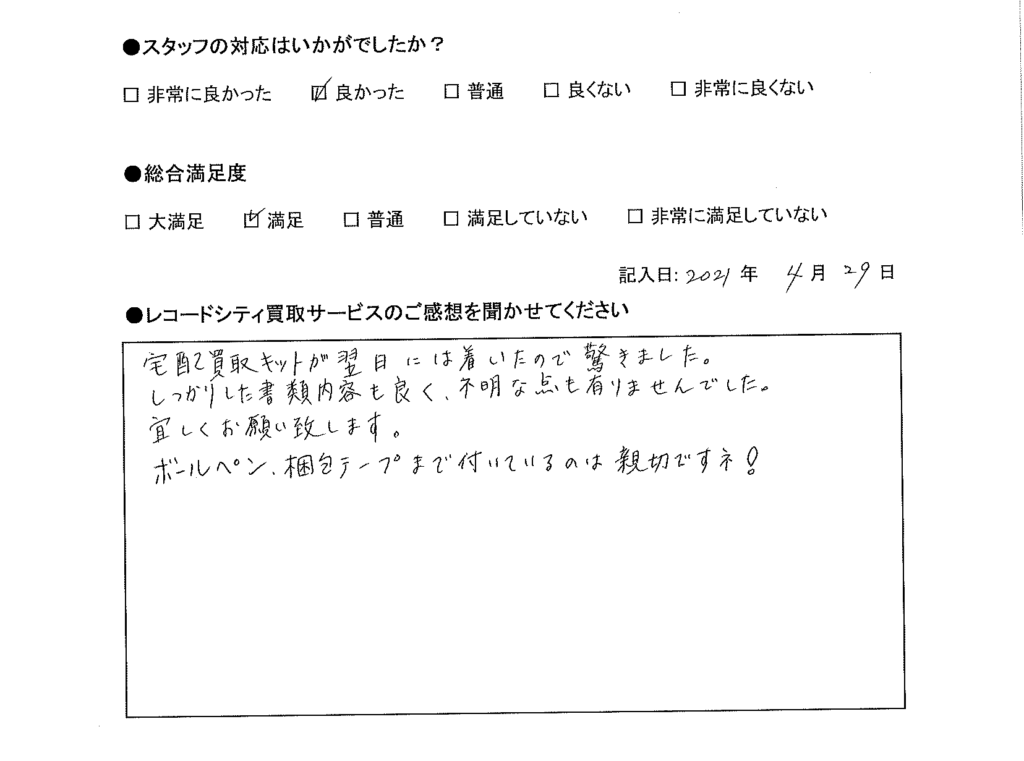 ●スタッフの対応はいかがでしたか？
□ 非常に良かった ☑ 良かった □ 普通 □ 良くない □ 非常に良くない
●総合満足度
□ 大満足 ☑ 満足 □ 普通 □ 満足していない □ 非常に満足していない
記入日: 2021 年 4 月 29 日
●レコードシティ買取サービスのご感想を聞かせてください
宅配買取キットが翌日には着いたので驚きました。
しっかりした書類内容も良く、不明な点も有りませんでした。
宜しくお願い致します。
ボールペン、梱包テープまで付いているのは親切ですネ！